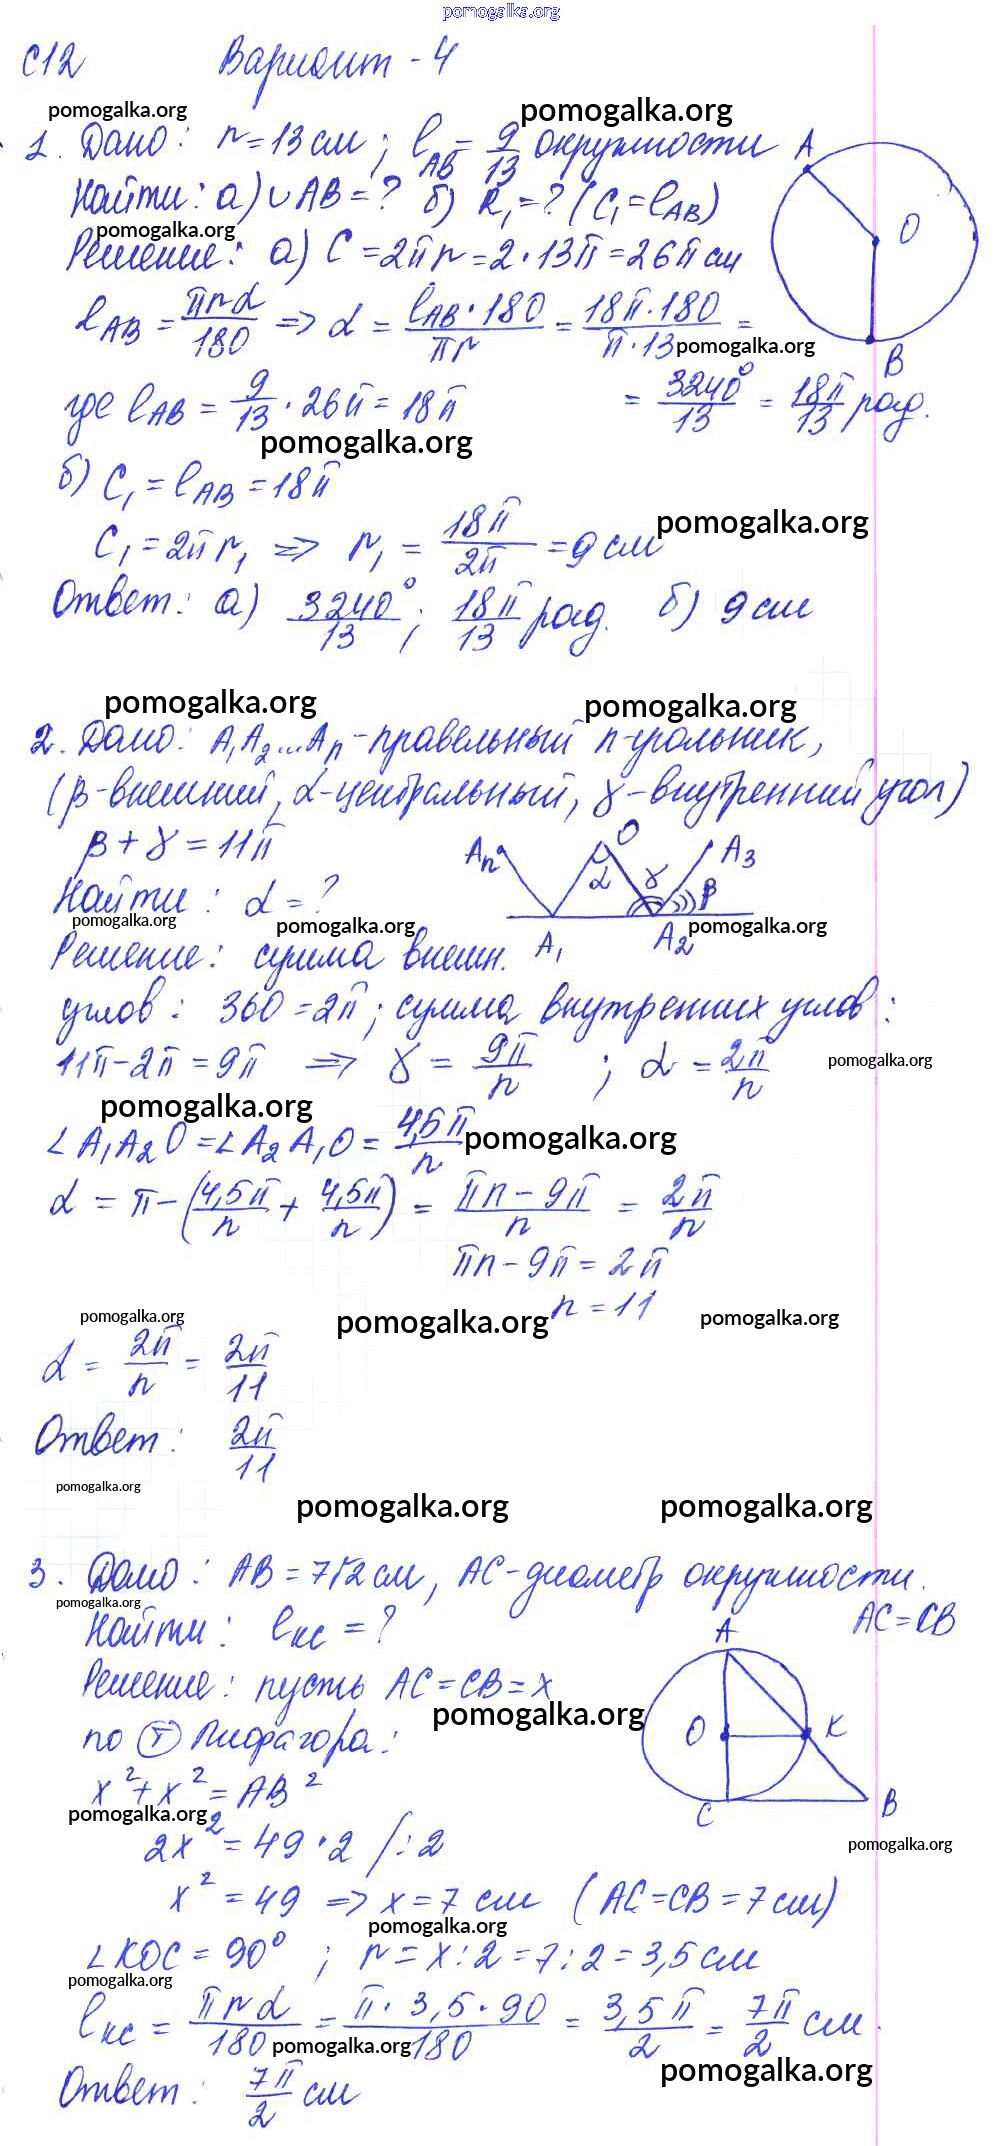 pomogalka.org
С12 Вариант - 4
pomogalka.org pomogalka.org
1. Дано: r = 13 см; l_AB = 9/13 окружности
A
Найти: а) ∪AB = ? б) R₁ = ? (C₁ = l_AB)
pomogalka.org
O
Решение: а) C = 2πr = 2·13π = 26π см
l_AB = πrα/180 => α = l_AB·180/πr = 18π·180/π·13 =
pomogalka.org
B
где l_AB = 9/13 · 26π = 18π = 3240°/13 = 18π/13 рад.
pomogalka.org
б) C₁ = l_AB = 18π
pomogalka.org
C₁ = 2πr₁ => r₁ = 18π/2π = 9 см
Ответ: а) 3240°/13; 18π/13 рад. б) 9 см
pomogalka.org pomogalka.org
2. Дано: A₁A₂...Aₙ - правельный n-угольник,
(β-внешний, α-центральный, γ-внутренний угол)
β + γ = 11π
Aₙ O α γ β A₃
Найти: α = ?
pomogalka.org pomogalka.org pomogalka.org
A₁ A₂
Решение: сумма внешн.
углов: 360 = 2π; сумма внутренних углов:
11π - 2π = 9π => γ = 9π/n ; α = 2π/n
pomogalka.org
pomogalka.org
∠A₁A₂O = ∠A₂A₁O = 4,5π/n
pomogalka.org
α = π - (4,5π/n + 4,5π/n) = πn - 9π/n = 2π/n
πn - 9π = 2π
n = 11
pomogalka.org pomogalka.org pomogalka.org
α = 2π/n = 2π/11
Ответ: 2π/11
pomogalka.org
pomogalka.org pomogalka.org
3. Дано: AB = 7√2 см, AC - диаметр окружности.
pomogalka.org
AC = CB
Найти: l_KC = ?
A
Решение: пусть AC = CB = x
pomogalka.org
по Т Пифагора:
O K
x² + x² = AB²
C B
pomogalka.org
2x² = 49·2 /:2
pomogalka.org
x² = 49 => x = 7 см (AC = CB = 7 см)
pomogalka.org
∠KOC = 90° ; r = x:2 = 7:2 = 3,5 см
pomogalka.org
l_KC = πrα/180 = π·3,5·90/180 = 3,5π/2 = 7π/2 см.
pomogalka.org
pomogalka.org
Ответ: 7π/2 см